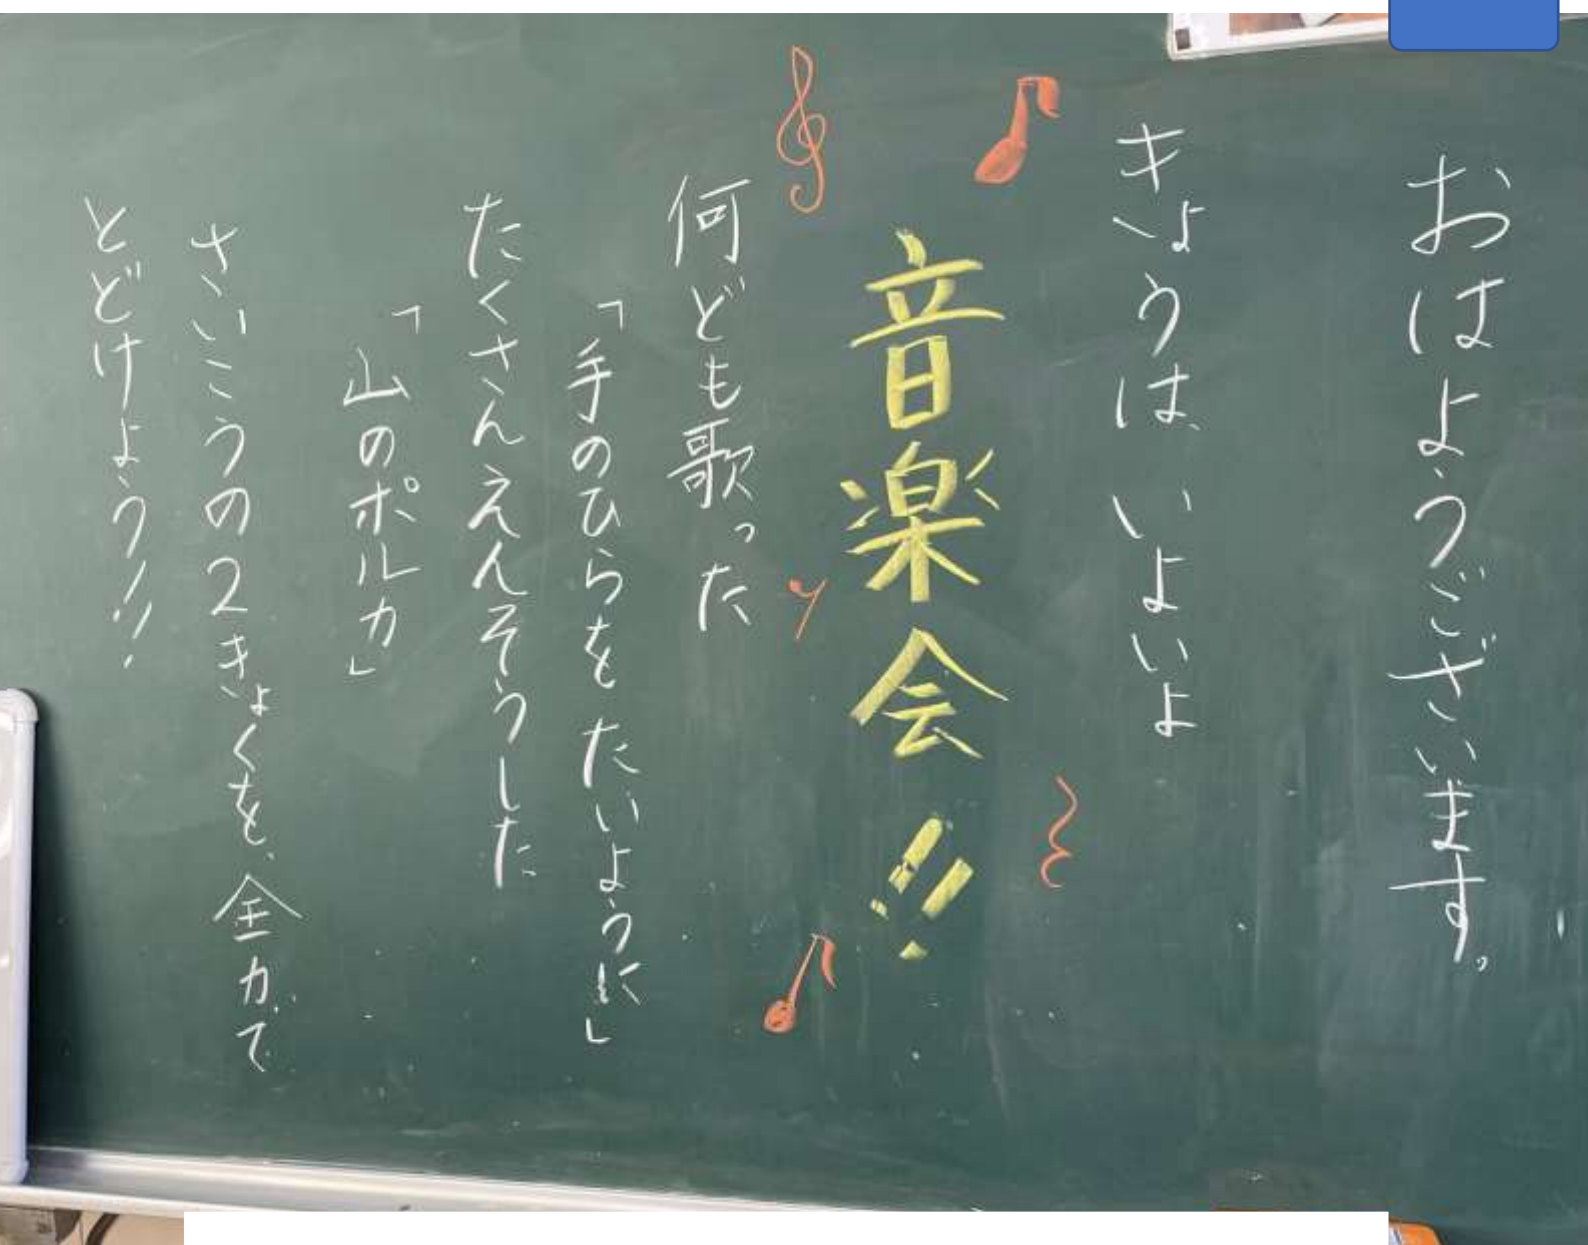 おはようございます。
きょうは いよいよ
音楽会!!
何ども歌った
「手のひらを たいように」
たくさんえんそうした
「山のポルカ」
さいこうの2きょくを、全力で
とどけよう!!